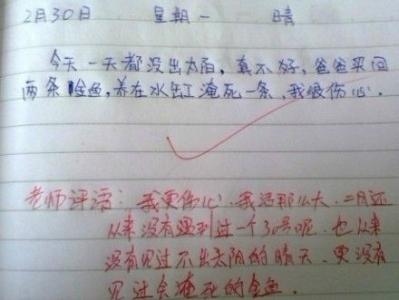 2月30日 星期一 晴
今天一天都没出太阳,真不好,爸爸买回
两条金鱼,养在水缸淹死一条,我很伤心.
老师评语:我更伤心,我活那么大,二月还
从来没有遇到过一个30号呢,也从来
没有见过不出太阴的晴天,更没有
见过会淹死的金鱼.